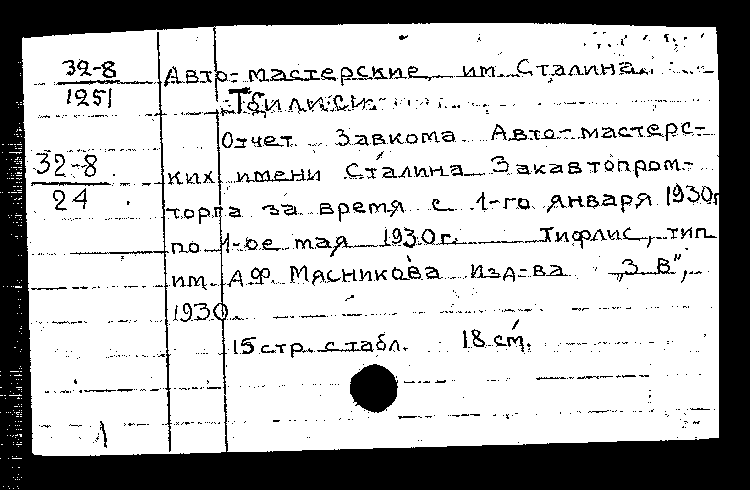 32-8
1251
Авто-мастерские им. Сталина.
Тбилиси.
Отчет Завкома Авто-мастерс-
32-8
24
ких имени Сталина Закавтопром-
торга за время с 1-го января 1930г
по 1-ое мая 1930г. Тифлис, тип
им. А.Ф. Мясникова изд-ва „З. В",
1930.
15 стр. с табл. 18 ст.
1